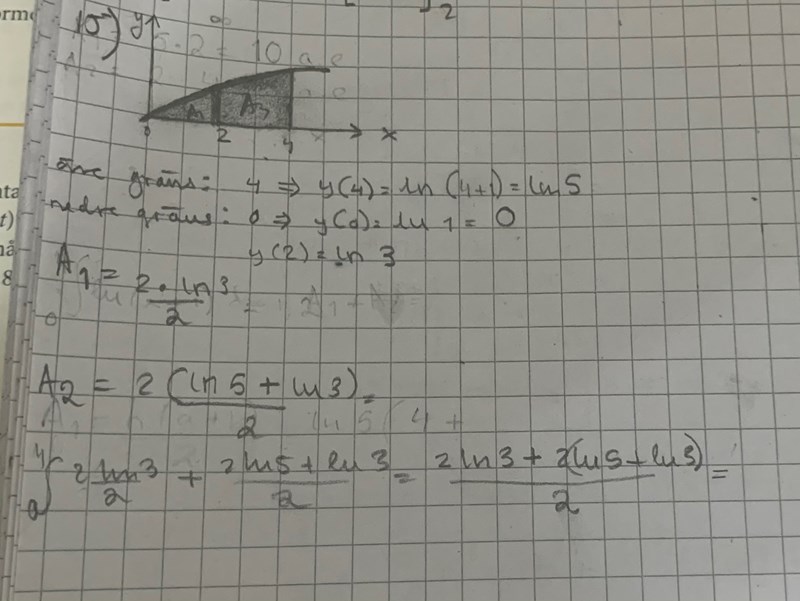 10) y
A₁ A₂
0 2 4 x
övre gräns: 4 ⇒ y(4) = ln (4+1) = ln 5
nedre gräns: 0 ⇒ y(0) = ln 1 = 0
y(2) = ln 3
A₁ = 2 · ln 3 / 2
A2 = 2 (ln 5 + ln 3) / 2 =
4 ∫ 0 2 ln 3 / 2 + 2 ln 5 + ln 3 / 2 = 2 ln 3 + 2(ln 5 + ln 3) / 2 =